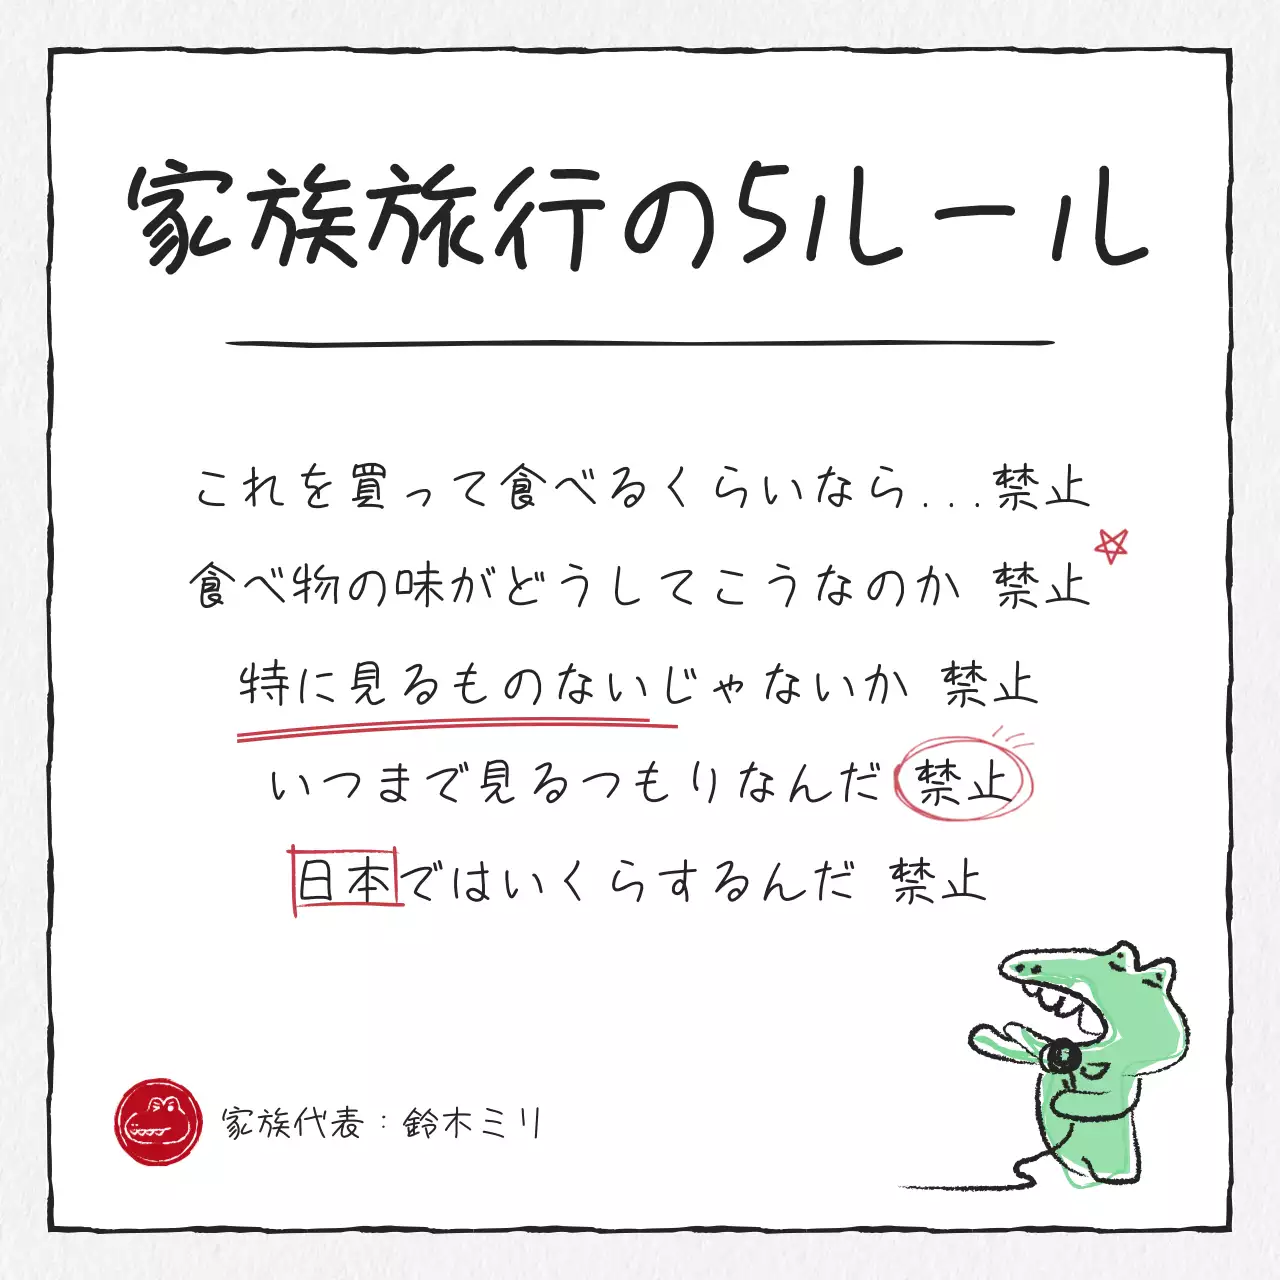 家族旅行の5ルール
これを買って食べるくらいなら...禁止
食べ物の味がどうしてこうなのか 禁止
特に見るものないじゃないか 禁止
いつまで見るつもりなんだ 禁止
日本ではいくらするんだ 禁止
家族代表:鈴木ミリ